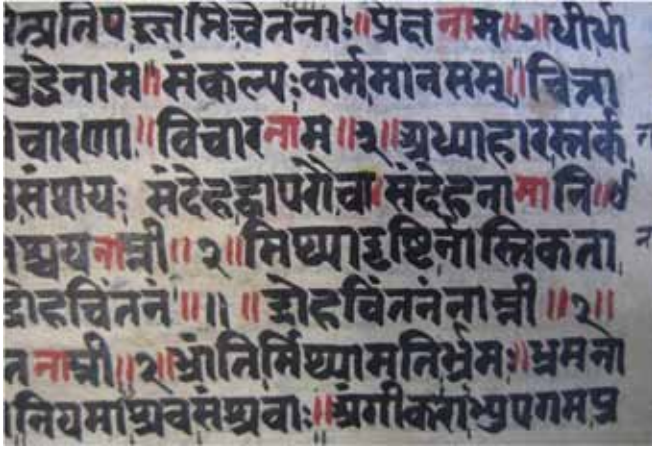 त्प्रतिपज्ज्ञप्तिचेतनाः॥प्रेक्षनाम॥७॥धीर्धा
बुद्धेनाम॥संकल्पःकर्ममानसम्॥चित्ता
चारणा॥विचारनाम॥२॥अध्याहारस्तर्क
संशयः संदेहद्वापरौचा॥संदेहनामानि॥
श्चयनाम्नी॥२॥मिथ्यादृष्टिर्नास्तिकता
द्रोहचिंतनं॥॥ ॥द्रोहचिंतनंनाम्नी॥२॥
त नाम्नी॥२॥भ्रांतिर्मिथ्यामतिर्भ्रमः॥भ्रमना
नियमाश्रवसंश्रवाः॥अंगीकाराभ्युपगमप्र